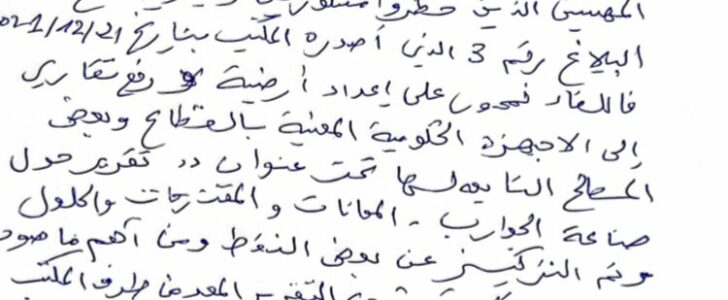 المهنيين الذين حضروا
البلاغ رقم 3 الذي أصدره المكتب بتاريخ 021/12/21
فاللقاء تمحور على إعداد أرضية و رفع تقارير
إلى الاجهزة الحكومية المعنية بالقطاع وبعض
المصالح التابعة لها تحت عنوان "تقرير حول
صناعة الجوارب - المعانات و المقترحات والحلول
وتم التركيز عن بعض النقط ومن أهم ما
التقرير المعد من طرف المكتب